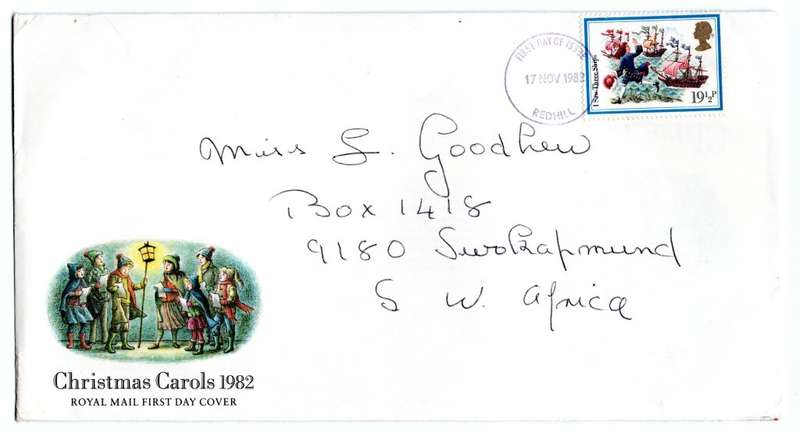 FIRST DAY OF ISSUE
17 NOV 1982
REDHILL
I Saw Three Ships
19½P
Miss L. Goodhew
Box 1418
9180 Swokapmund
S W. Africa
Christmas Carols 1982
ROYAL MAIL FIRST DAY COVER